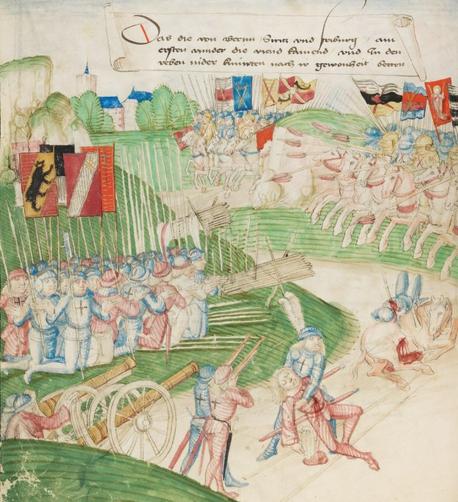 Das die von Bernn Switz und friburg am
ersten under die viend kamend und In den
reben nider knüwten nach ir gewonheit betten